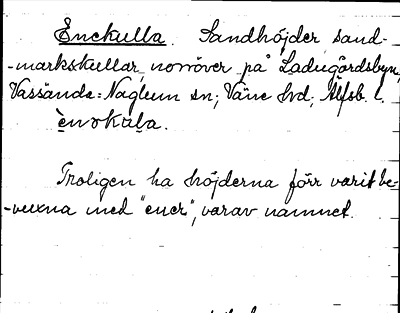 Enekulla. Sandhöjder, sand-
-markskullar, norröver på Ladugårdsbyn,
Vassända-Naglum sn; Väne hd; Älfsb. l.
ènokùla.
Troligen ha höjderna förr varit be-
-vuxna med "ener", varav namnet.